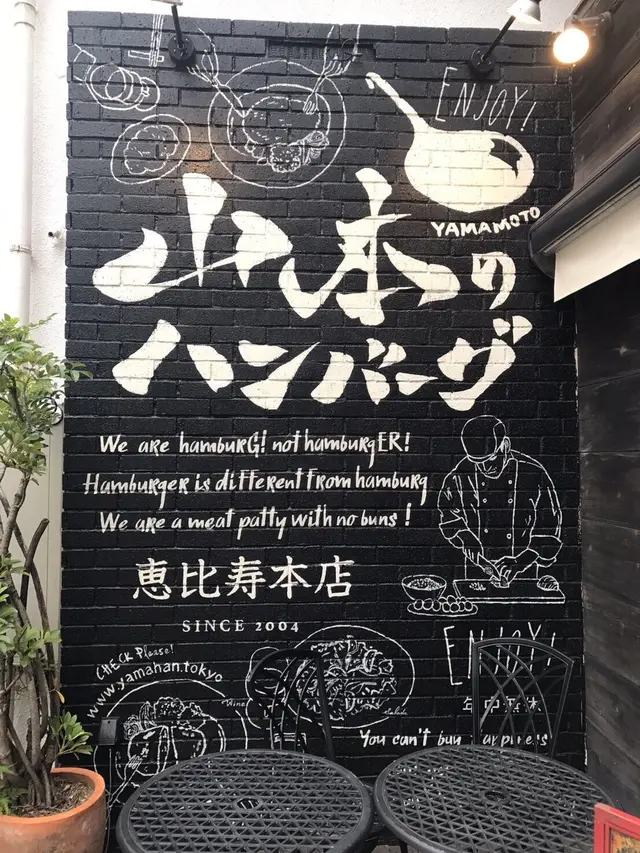 ENJOY!
YAMAMOTO
山本の
ハンバーグ
We are hamburG! not hamburgER!
Hamburger is different from hamburg
We are a meat patty with no buns!
恵比寿本店
SINCE 2004
CHECK Please!
www.yamahan.tokyo
Wine
Salada
ENJOY!
年中無休
You can't buy happiness